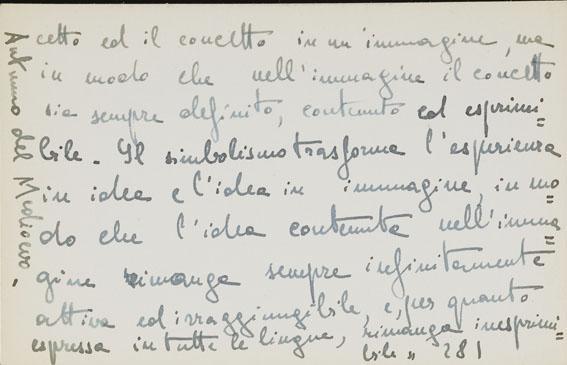 cetto ed il concetto in un'immagine, ma
in modo che nell'immagine il concetto
sia sempre definito, contenuto ed esprimi=
bile. Il simbolismo trasforma l'esperienza
in idea e l'idea in immagine, in mo=
do che l'idea contenuta nell'imma=
gine rimanga sempre infinitamente
attiva ed irraggiungibile, e, per quanto
espressa in tutte le lingue, rimanga inesprimi=
bile „ 281
Autunno del Medioevo.